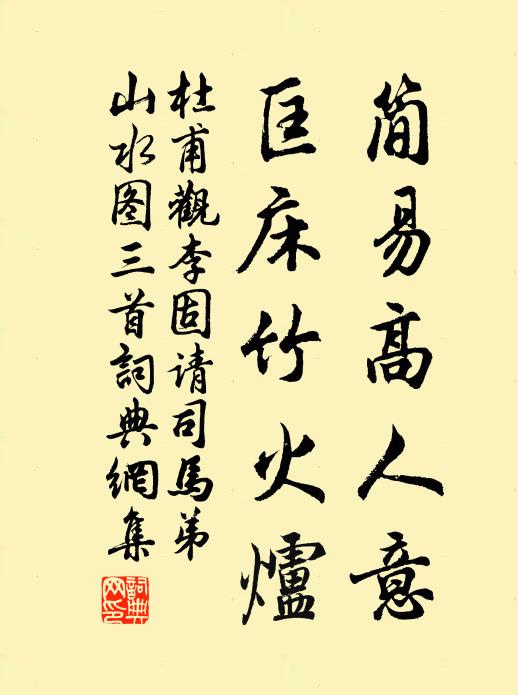 简易高人意
匡床竹火爐
杜甫觀李固请司馬弟
山水图三首詞典網集
詞典网印